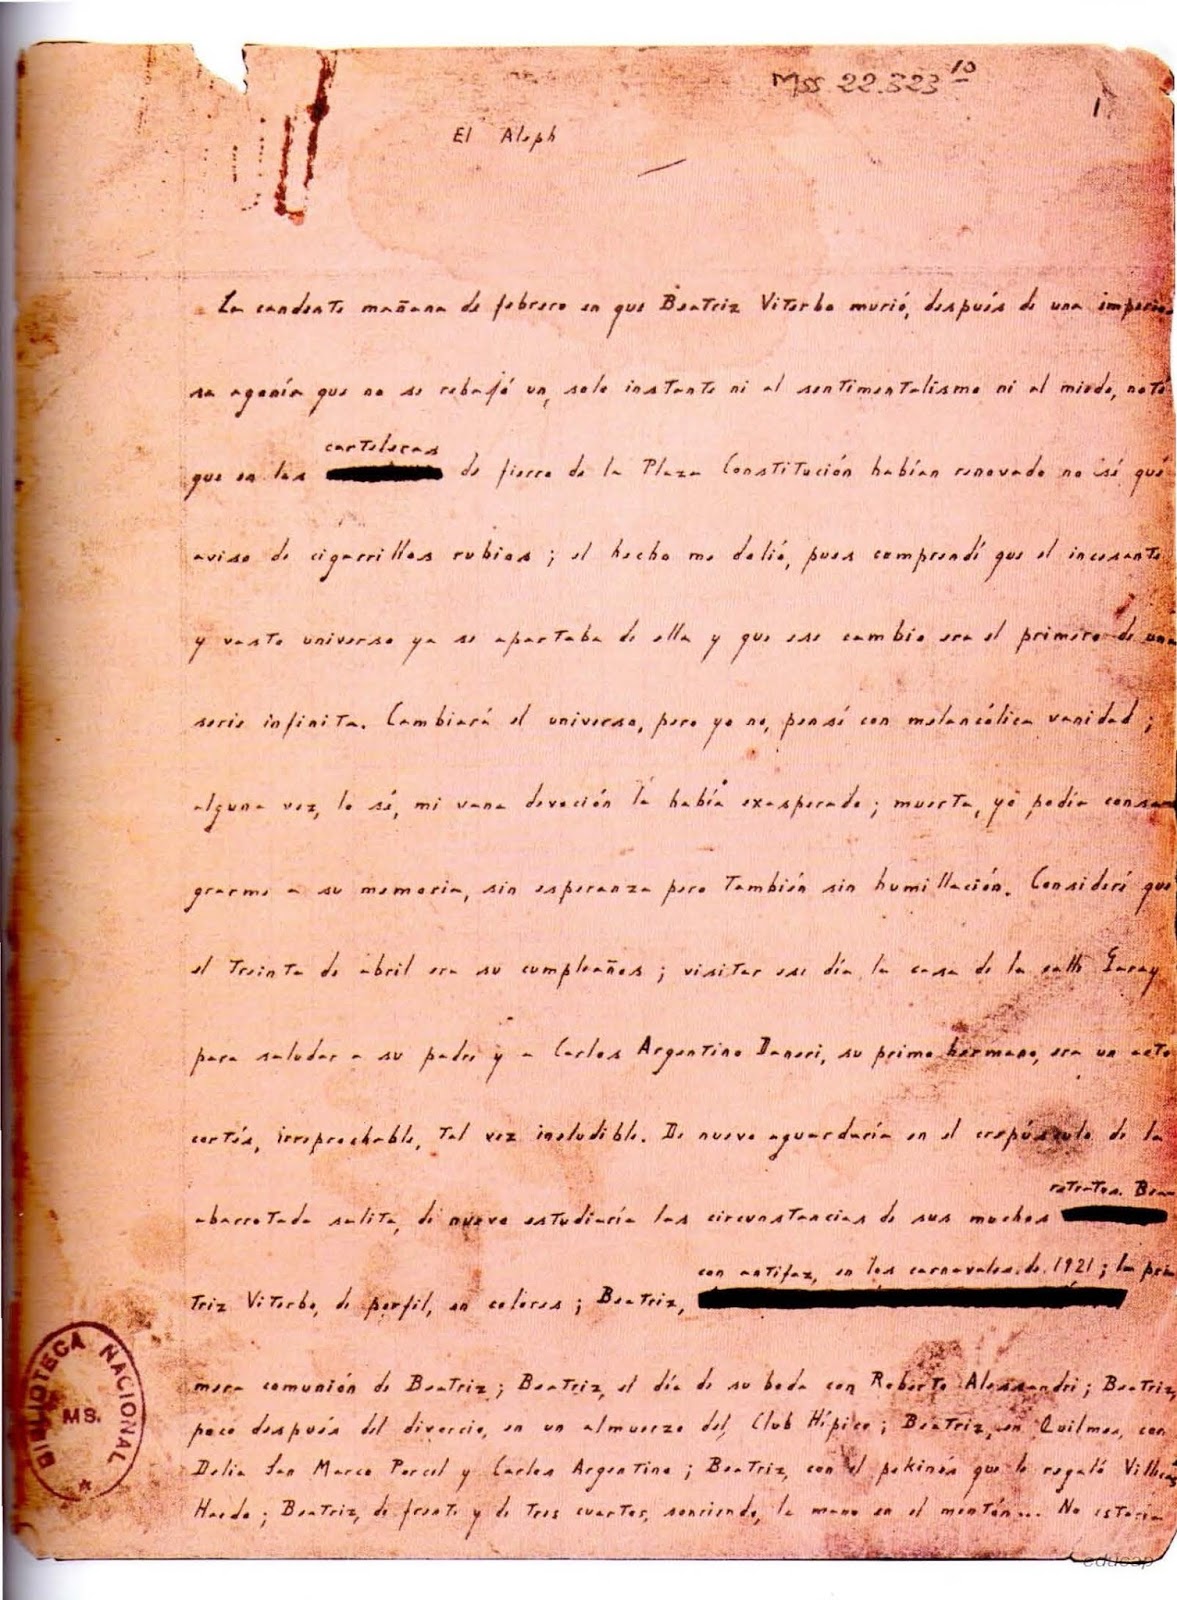 Mss. 22.323 10
1
El Aleph
La candente mañana de febrero en que Beatriz Viterbo murió, después de una imperio
sa agonía que no se rebajó un solo instante ni al sentimentalismo ni al miedo, noté
carteleras
que en las de fierro de la Plaza Constitución habían renovado no sé qué
aviso de cigarrillos rubios; el hecho me dolió, pues comprendí que el incesante
y vasto universo ya se apartaba de ella y que ese cambio era el primero de una
serie infinita. Cambiará el universo, pero yo no, pensé con melancólica vanidad;
alguna vez, lo sé, mi vana devoción la había exasperado; muerta, yo podía consa
grarme a su memoria, sin esperanza pero también sin humillación. Consideré que
el treinta de abril era su cumpleaños; visitar ese día la casa de la calle Garay
para saludar a su padre y a Carlos Argentino Daneri, su primo hermano, era un acto
cortés, irreprochable, tal vez ineludible. De nuevo aguardaría en el crepúsculo de la
retratos. Bea
abarrotada salita, de nuevo estudiaría las circunstancias de sus muchos
con antifaz, en los carnavales de 1921; la pri
triz Viterbo, de perfil, en colores; Beatriz,
mera comunión de Beatriz; Beatriz, el día de su boda con Roberto Alessandri; Beatriz,
poco después del divorcio, en un almuerzo del Club Hípico; Beatriz, en Quilmes, con
Delia San Marco Porcel y Carlos Argentino; Beatriz, con el pekinés que le regaló Villegas
Haedo; Beatriz, de frente y de tres cuartos, sonriendo, la mano en el mentón... No estaría
BIBLIOTECA NACIONAL
MS.
educap